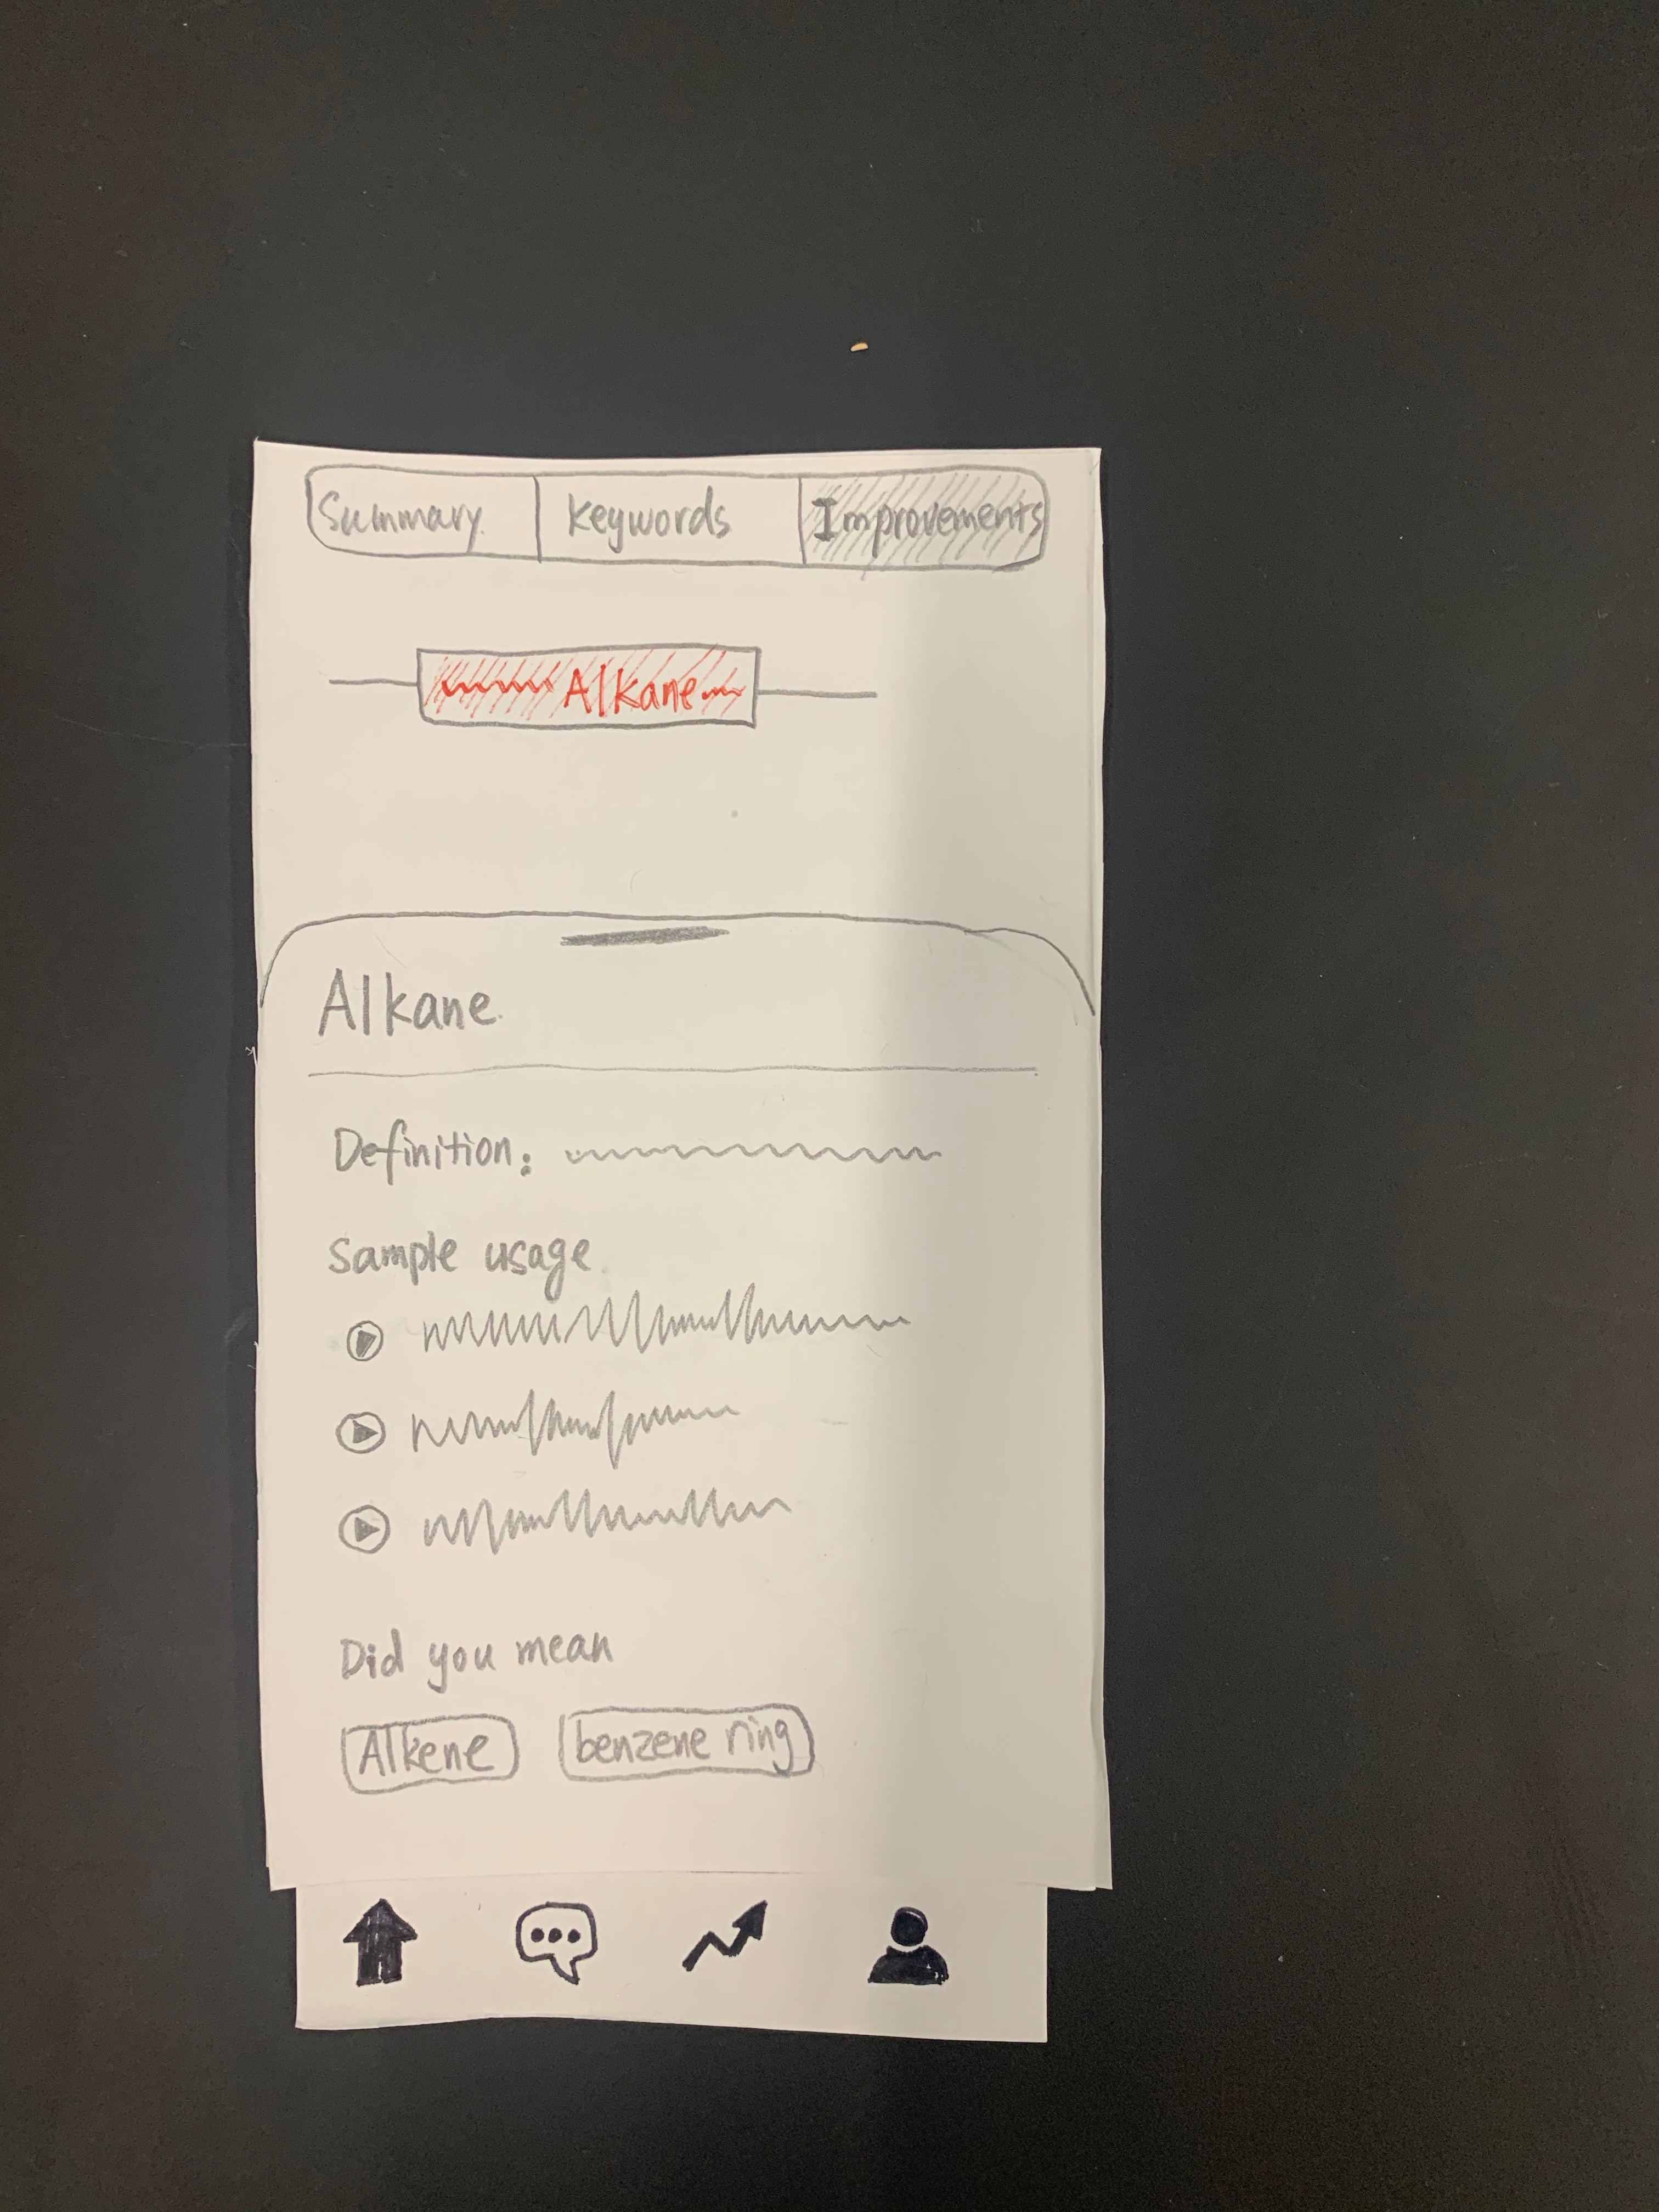 Summary.
keywords
Improvements
Alkane
Alkane.
Definition:
Sample usage.
Did you mean
Alkene
benzene ring